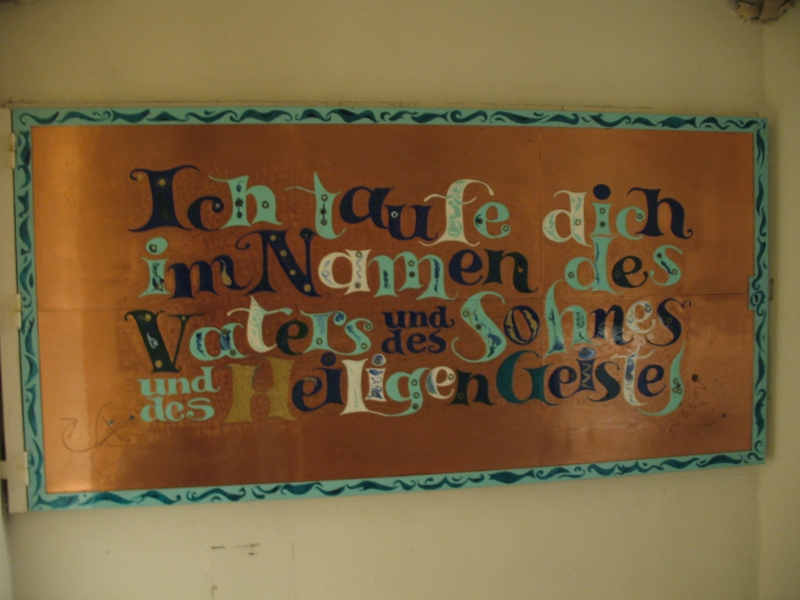 Ich taufe dich
im Namen des
Vaters und des Sohnes
und des Heiligen Geistes